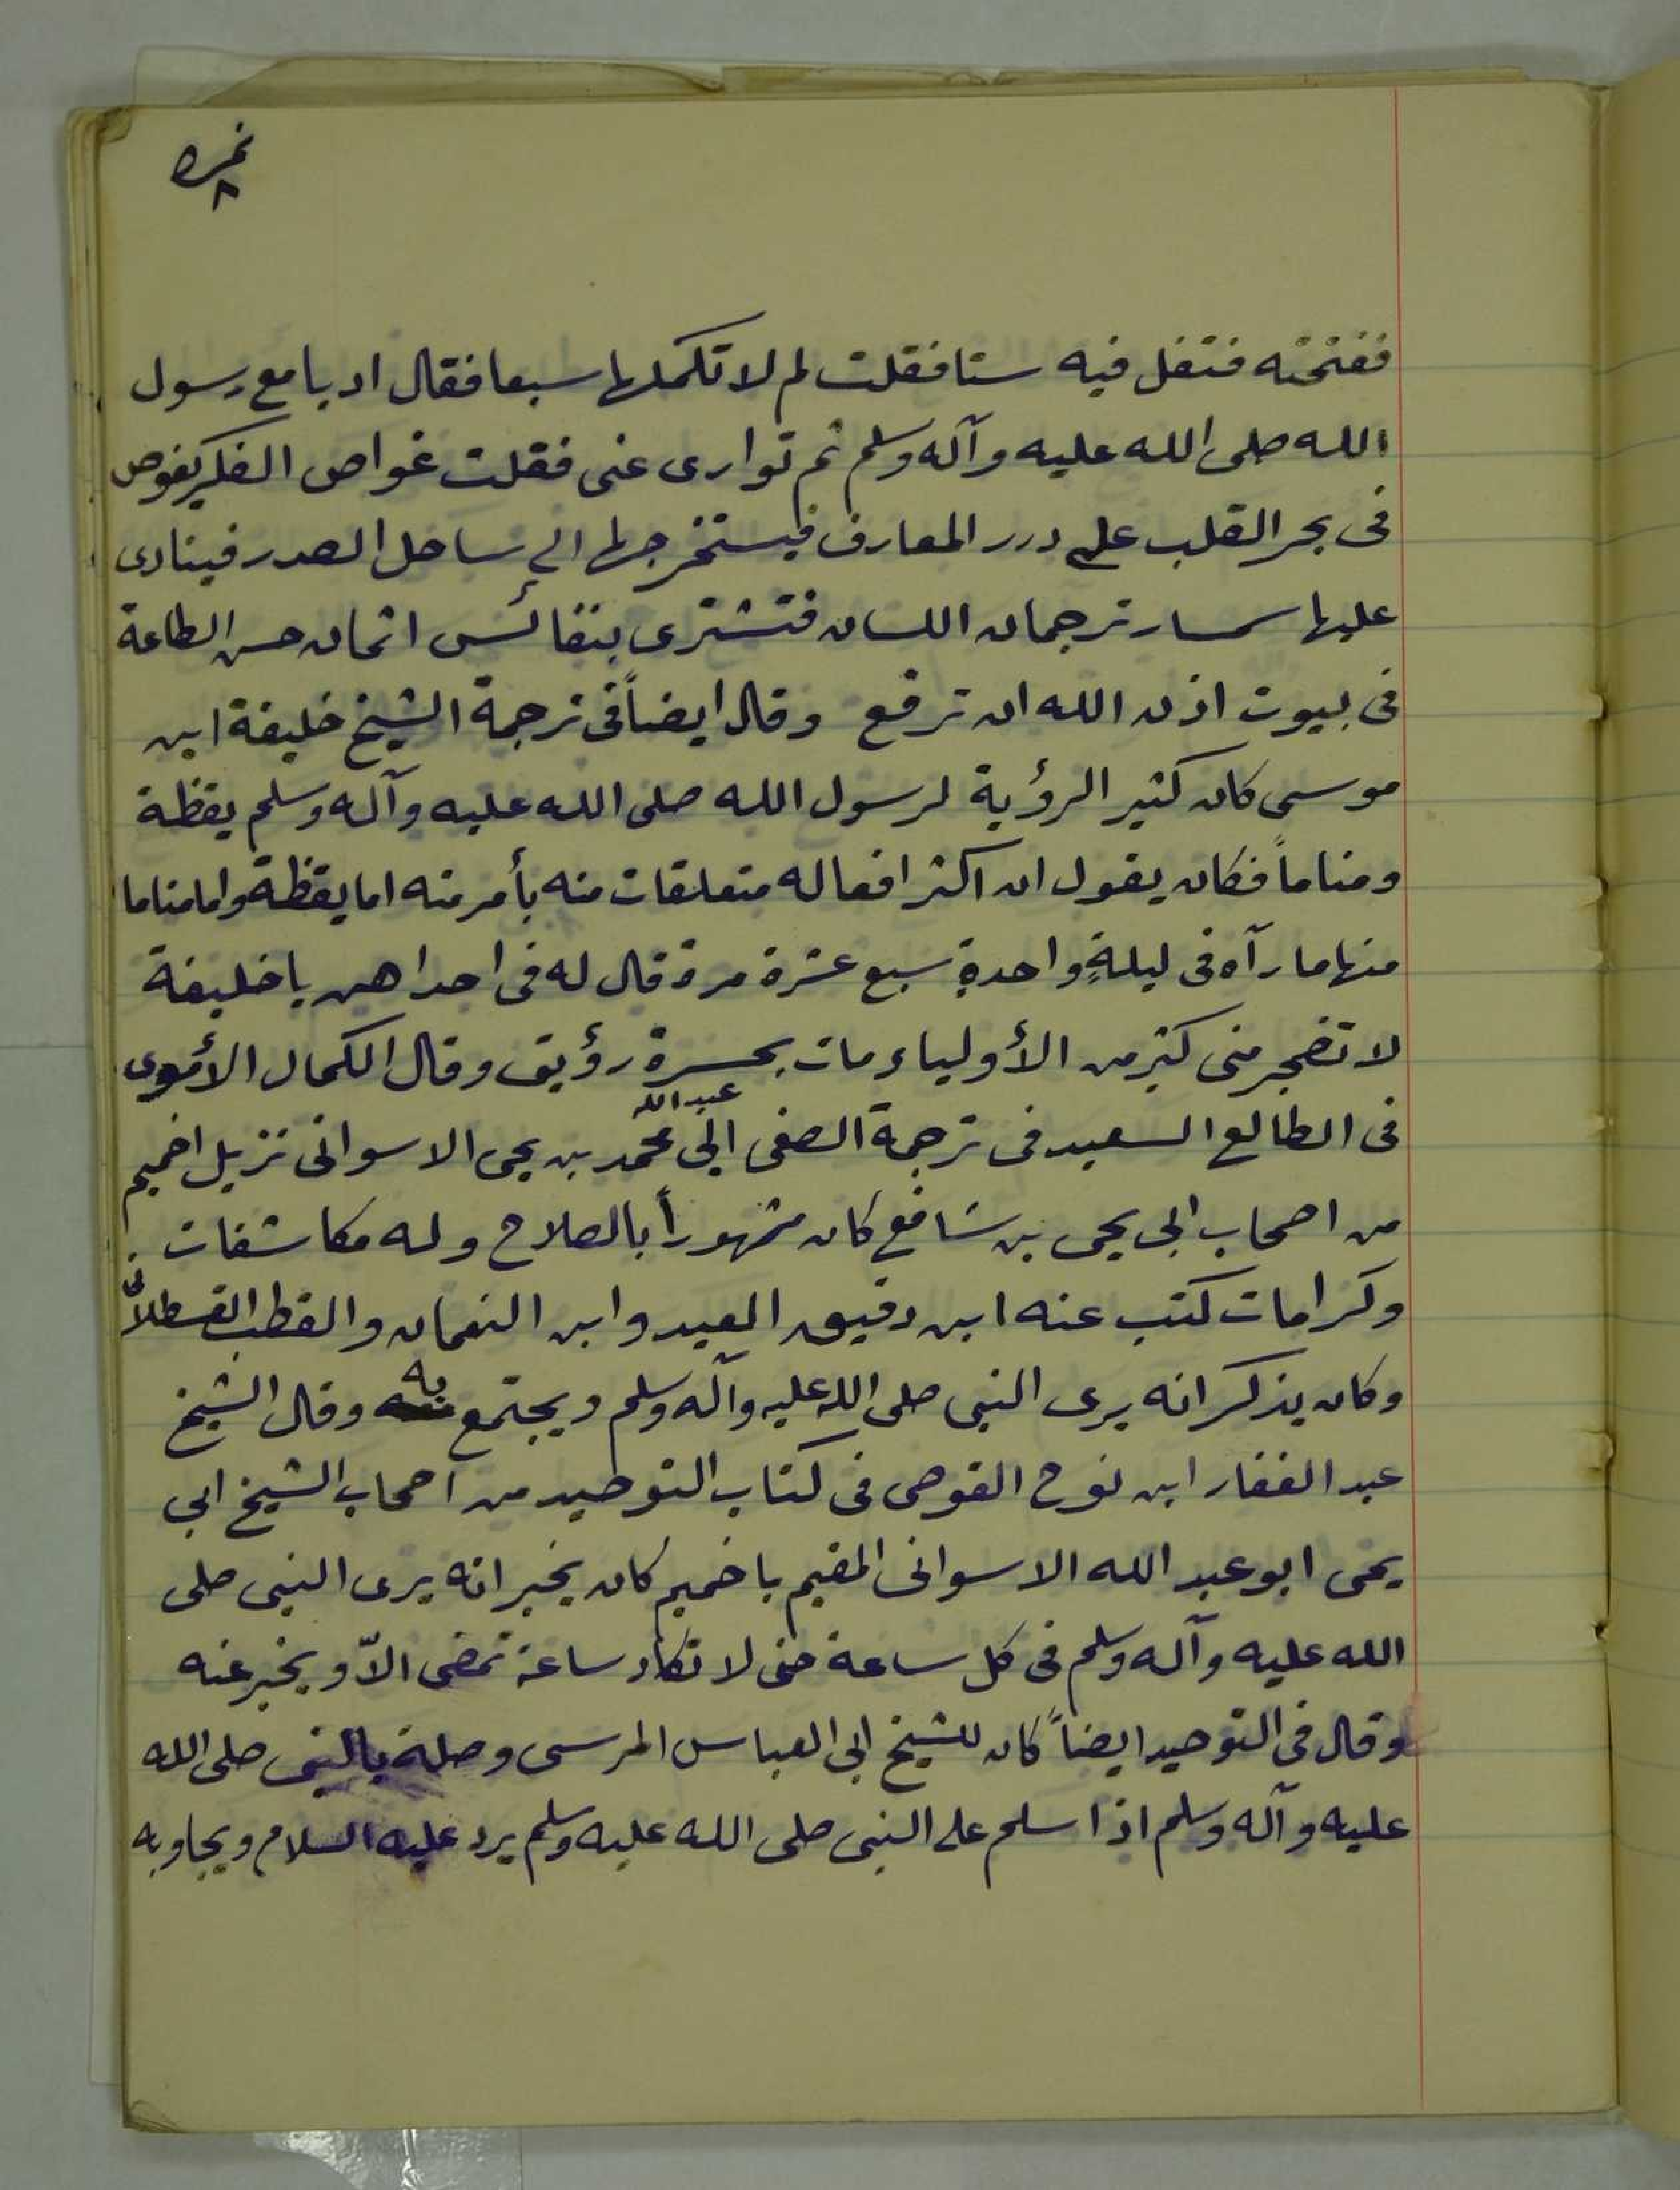 نمرة
٨
ففتحته فتفل فيه ستا فقلت لم لا تكملها سبعا فقال ادبا مع رسول
الله صلى الله عليه وآله وسلم ثم توارى عنى فقلت غواص الفكر يغوص
فى بحر القلب على درر المعارف فيستخرجها الى ساحل الصدر فينادى
عليها سمسار ترجمان اللسان فتشترى بنفائس اثمان حسن الطاعة
فى بيوت اذن الله ان ترفع وقال ايضاً فى ترجمة الشيخ خليفة ابن
موسى كان كثير الرؤية لرسول الله صلى الله عليه وآله وسلم يقظة
ومناماً فكان يقول ان اكثر افعاله متعلقات منه بأمر منه اما يقظة واما مناما
منها ما رآه فى ليلةٍ واحدةٍ سبع عشرة مرة قال له فى احداهن يا خليفة
لا تضجر منى كثير من الأولياء مات بحسرة رؤيتى وقال الكمال الأدفوى
فى الطالع السعيد فى ترجمة الصفى ابى عبد الله محمد بن يحى الاسوانى نزيل اخميم
من اصحاب ابى يحى بن شافع كان مشهوراً بالصلاح وله مكاشفات
وكرامات كتب عنه ابن دقيق العيد وابن النعمان والقطب القسطلانى
وكان يذكر انه يرى النبى صلى الله عليه وآله وسلم ويجتمع به وقال الشيخ
عبد الغفار ابن نوح القوصى فى كتاب التوحيد من اصحاب الشيخ ابى
يحى ابو عبد الله الاسوانى المقيم باخميم كان يخبر انه يرى النبى صلى
الله عليه وآله وسلم فى كل ساعة حتى لا تكاد ساعة تمضى الاّ ويخبر عنه
وقال فى التوحيد ايضاً كان للشيخ ابى العباس المرسى وصلة بالنبى صلى الله
عليه وآله وسلم اذا سلم على النبى صلى الله عليه وسلم يرد عليه السلام ويجاوبه